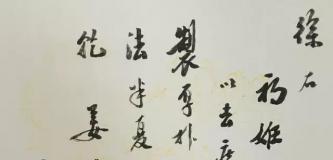 徐右
初
以去
製厚朴
法半夏
乾姜